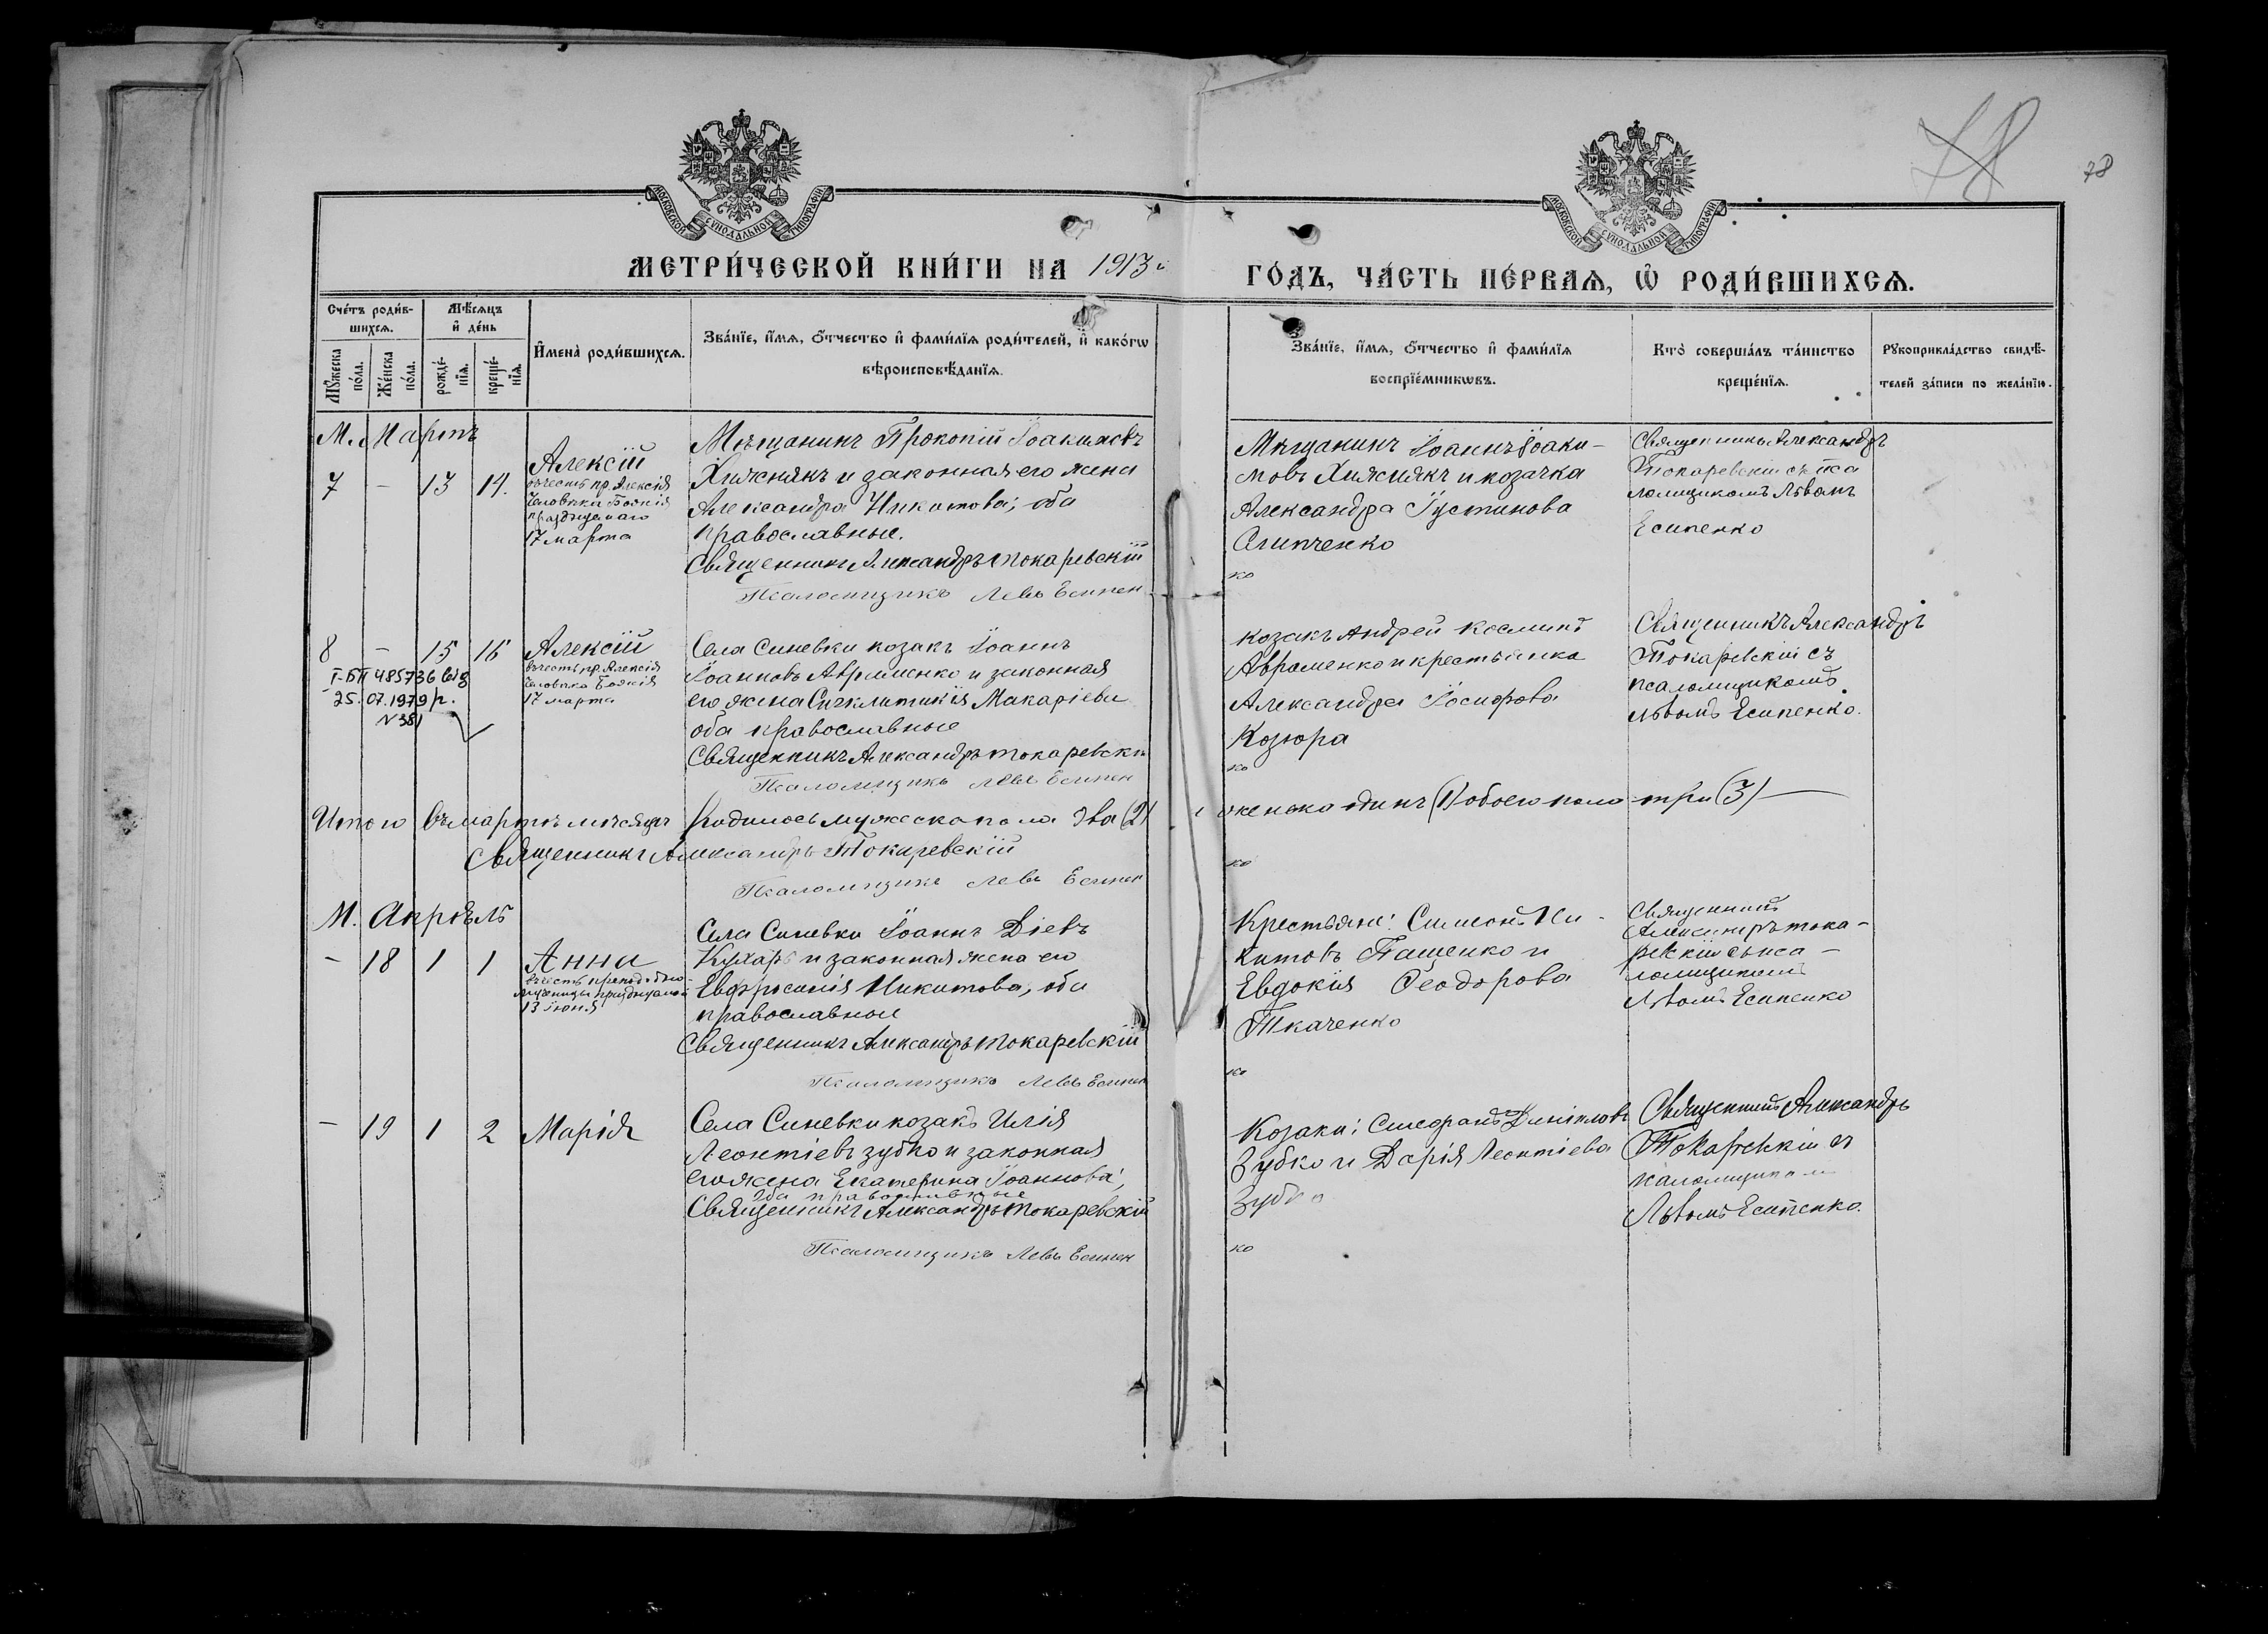 78
78
МОСКОВСКОЙ СѴНОДАЛЬНОЙ ТИПОГРАФІИ
МОСКОВСКОЙ СѴНОДАЛЬНОЙ ТИПОГРАФІИ
МЕТРИ́ЧЕСКОЙ КНИ́ГИ НА 1913
ГО́ДЪ, ЧА́СТЬ ПЕ́РВАѦ, Ѡ РОДИ́ВШИХСѦ.
Сче́тъ роди́в-
шихсѧ.
Мꙋ́жеска по́ла.
Же́нска по́ла.
Мѣ́сѧцъ
и҆ де́нь
рожде́-
нїѧ.
креще́-
нїѧ.
И҆мена̀ роди́вшихсѧ.
Зва́нїе, и҆́мѧ, ѻ҆́тчество и҆ фами́лїѧ роди́телей, и҆ како́гѡ
вѣроисповѣ́данїѧ.
Зва́нїе, и҆́мѧ, ѻ҆́тчество и҆ фами́лїѧ
воспрїе́мникѡвъ.
Кто̀ соверша́лъ та́инство
креще́нїѧ.
Рꙋкоприкла́дство свидѣ́-
телей за́писи по жела́нїю.
М. Мартъ
7 - 13 14.
Алексій
въ честь пр. Алексія
Человѣка Божія
празднуемаго
17 марта
Мѣщанинъ Прокопій Іоакимовъ
Хижнякъ и законная его жена
Александра Никитова; оба
православные.
Священникъ Александръ Токаревскій
Псаломщикъ Левъ Есипен
ко
Мѣщанинъ Іоаннъ Іоаки-
мовъ Хижнякъ и козачка
Александра Іустинова
Священникъ Александръ
Токаревскій съ пса
ломщикомъ Львомъ
Есипенко
8 - 15 16
I-БП 485736 від
25.07.1979 р.
N 381
Алексій
въ честь пр. Алексія
Человѣка Божія
17 марта
Села Синевки козакъ Іоаннъ
Іоанновъ Авраменко и законная
его жена Синклитикія Макаріева
оба православные
Священникъ Александръ Токаревскій
Псаломщикъ Левъ Есипен
ко
Козакъ Андрей Косминъ
Авраменко и крестьянка
Александра Іосифова
Козюра
Священникъ Александръ
Токаревскій съ
псаломщикомъ
Львомъ Есипенко.
Итого въ мартѣ мѣсяцѣ родилось мужеска пола два (2) женска одинъ (1) обоего пола три (3)
Священникъ Александръ Токаревскій
Псаломщикъ Левъ Есипен
ко
М. Апрѣль
- 18 1 1 Анна
въ честь преподобно-
мученицы празднуемой
13 Іюня
Села Синевки Іоаннъ Діевъ
Кухарь и законная жена его
Евфросинія Никитова, оба
православные
Священникъ Александръ Токаревскій
Псаломщикъ Левъ Есипен
ко
Крестьяне: Симеонъ Ни-
китовъ Пащенко и
Евдокія Ѳеодорова
Ткаченко
Священникъ
Александръ Тока-
ревскій съ пса-
ломщикомъ
Львомъ Есипенко
- 19 1 2 Марія
Села Синевки козакъ Илія
Леонтіевъ Зубко и законная
его жена Екатерина Іоаннова;
оба православные
Священникъ Александръ Токаревскій
Псаломщикъ Левъ Есипен
ко
Козаки:
Зубко и Дарія Леонтіева
Зубко
Священникъ Александръ
Токаревскій съ
псаломщикомъ
Львомъ Есипенко.